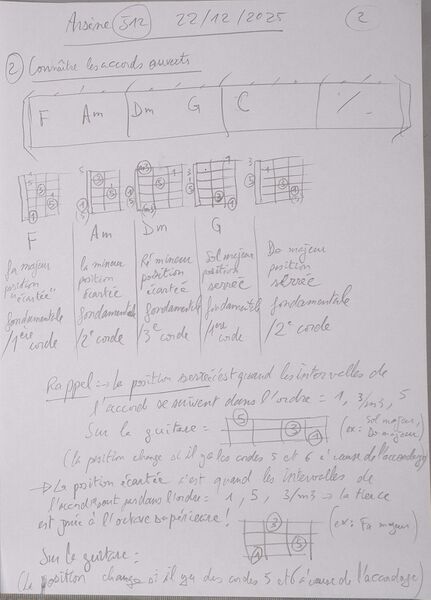 Arsène S12 22/12/2025 2
2 Connaître les accords ouverts
F Am Dm G C ٪
F Am Dm G
Fa majeur la mineur Ré mineur Sol majeur Do majeur
position position position position position
"écartée" écartée écartée serrée serrée
fondamentale fondamentale fondamentale fondamentale fondamentale
/1ère corde /2e corde /3e corde /1ère corde /2e corde
Rappel : la position serrée c'est quand les intervalles de
l'accord se suivent dans l'ordre = 1, 3/m3, 5
Sur la guitare = 5 3 1 (ex: Sol majeur, Do majeur)
(la position change s'il y a les cordes 5 et 6 à cause de l'accordage)
→ La position écartée c'est quand les intervalles de
l'accord sont dans l'ordre = 1, 5, 3/m3 → la tierce
est jouée à l'octave supérieure !
Sur la guitare : 3 1 5 (ex: Fa majeur)
(La position change s'il y a des cordes 5 et 6 à cause de l'accordage)